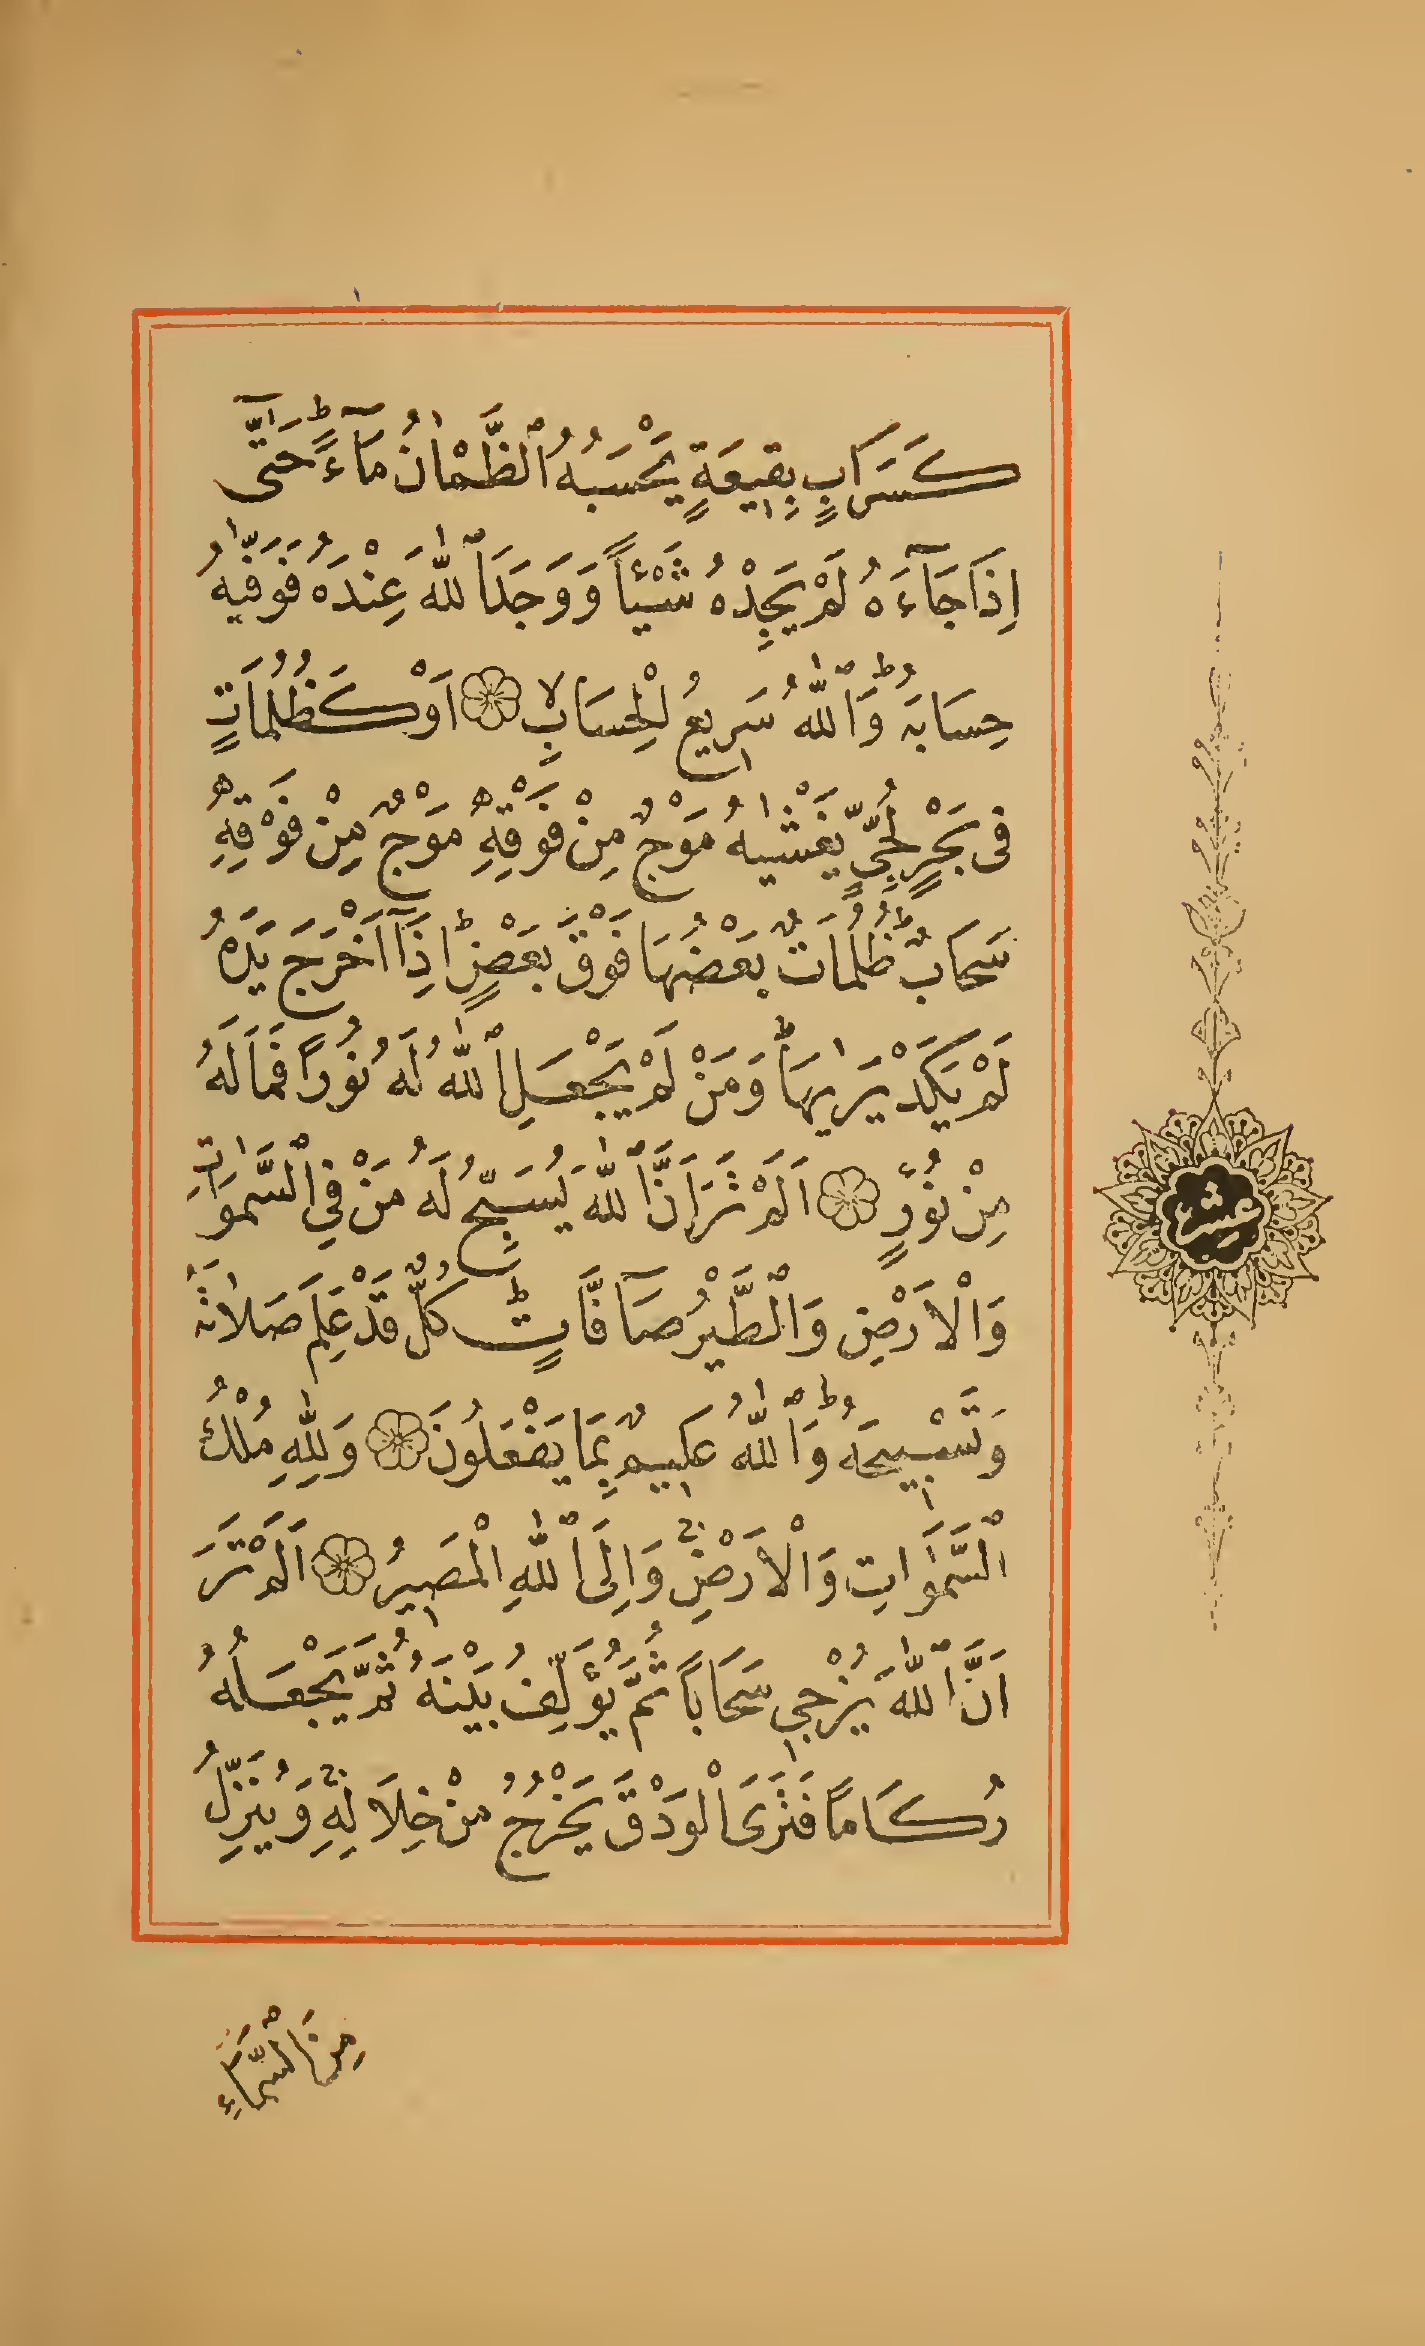 كَسَرَابٍ بِقِيعَةٍ يَحْسَبُهُ ٱلظَّمْاٰنُ مَآءًۜ حَتّٰىٓ
اِذَا جَآءَهُ لَمْ يَجِدْهُ شَيْـًٔا وَوَجَدَ ٱللّٰهَ عِنْدَهُ فَوَفّٰيهُ
حِسَابَهُۜ وَٱللّٰهُ سَرِيعُ ٱلْحِسَابِۙ ۝ اَوْ كَظُلُمَاتٍ
فِى بَحْرٍ لُجِّىٍّ يَغْشٰيهُ مَوْجٌ مِنْ فَوْقِهِۦ مَوْجٌ مِنْ فَوْقِهِۦ
سَحَابٌۜ ظُلُمَاتٌ بَعْضُهَا فَوْقَ بَعْضٍۜ اِذَآ اَخْرَجَ يَدَهُ
لَمْ يَكَدْ يَرٰيهَاۜ وَمَنْ لَمْ يَجْعَلِ ٱللّٰهُ لَهُ نُورًا فَمَا لَهُ
مِنْ نُورٍ ۝ اَلَمْ تَرَ اَنَّ ٱللّٰهَ يُسَبِّحُ لَهُ مَنْ فِي ٱلسَّمٰوَاتِ
وَٱلْاَرْضِ وَٱلطَّيْرُ صَآفَّاتٍۜ كُلٌّ قَدْ عَلِمَ صَلَاتَهُ
وَتَسْبِيحَهُۜ وَٱللّٰهُ عَلِيمٌ بِمَا يَفْعَلُونَ ۝ وَلِلّٰهِ مُلْكُ
ٱلسَّمٰوَاتِ وَٱلْاَرْضِۚ وَاِلَى ٱللّٰهِ ٱلْمَصِيرُ ۝ اَلَمْ تَرَ
اَنَّ ٱللّٰهَ يُزْجِي سَحَابًا ثُمَّ يُؤَلِّفُ بَيْنَهُ ثُمَّ يَجْعَلُهُ
رُكَامًا فَتَرَى ٱلْوَدْقَ يَخْرُجُ مِنْ خِلَالِهِۚ وَيُنَزِّلُ
مِنَ ٱلسَّمَآءِ
عشر